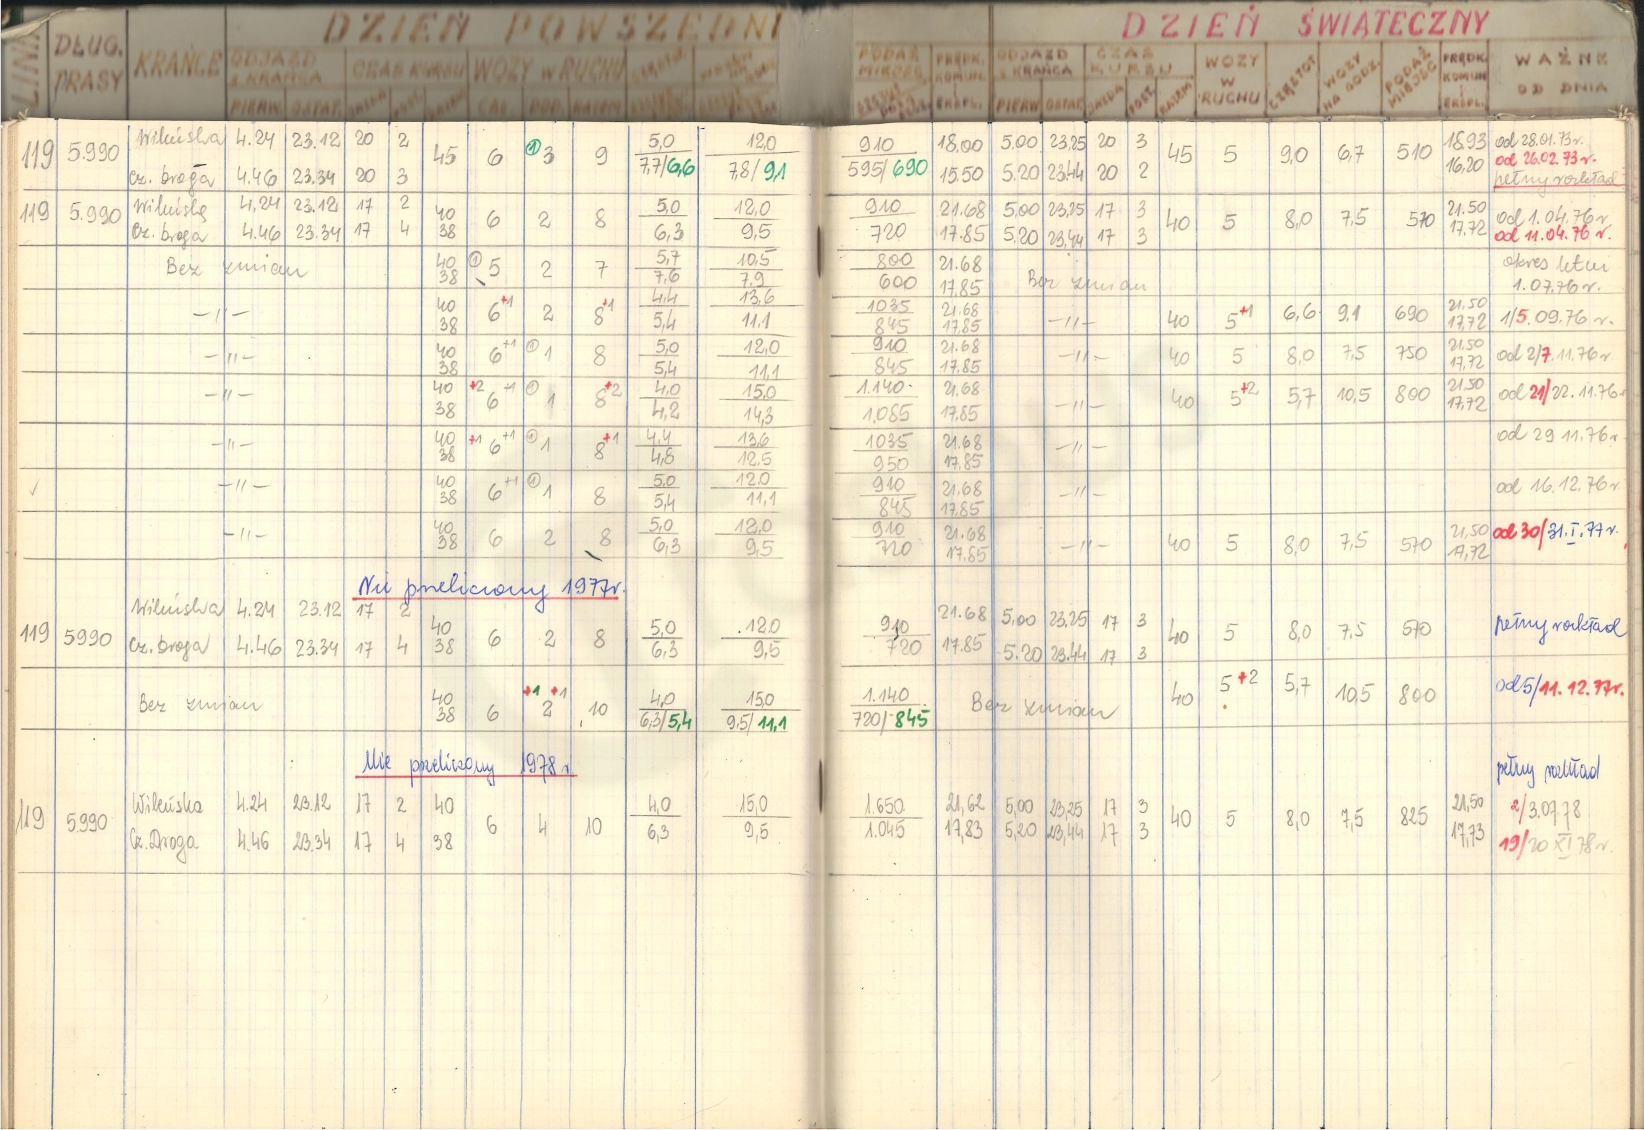 DZIEŃ POWSZEDNI DZIEŃ ŚWIĄTECZNY
LINIA DŁUG. TRASY KRAŃCE ODJAZD Z KRAŃCA CZAS KURSU WOZY w RUCHU PODAŻ MIEJSC PRĘDK. KOMUN. i EKSPL. ODJAZD z KRAŃCA CZAS KURSU WOZY W RUCHU CZĘSTOT WOZY NA GODZ. PODAŻ MIEJSC PRĘDK. KOMUN i EKSPL. WAŻNE OD DNIA
PIERW. OSTAT. JAZDA POST. RAZEM CAŁ. DOD. RAZEM PIERW OSTAT. JAZDA POST. RAZEM
119 5.990 Wileńska 4.24 23.12 20 2 45 6 ① 3 9 5,0 12,0 910 18,00 5,00 23,25 20 3 45 5 9,0 6,7 510 18.93 od 28.01.73 r.
Cz. Droga 4.46 23.34 20 3 7,7/6,6 7,8/9,1 595/690 15.50 5.20 23.44 20 2 16,20 od 26.02.73 r.
pełny rozkład
119 5.990 Wileńska 4.24 23.12 17 2 40 6 2 8 5,0 12,0 910 21.68 5,00 23,25 17 3 40 5 8,0 7,5 570 21.50 od 1.04.76 r
Cz. Droga 4.46 23.34 17 4 38 6,3 9,5 720 17.85 5.20 23,44 17 3 17,72 od 11.04.76 r.
Bez zmian 40 ① 5 2 7 5,7 10,5 800 21.68 Bez zmian okres letni
38 7,6 7,9 600 17,85 1.07.76 r.
—〃— 40 6+1 2 8+1 4,4 13,6 1035 21.68 —〃— 40 5+1 6,6 9,1 690 21.50 1/5.09.76 r.
38 5,4 11,1 845 17,85 17,72
—〃— 40 6+1 ① 1 8 5,0 12,0 910 21.68 —〃— 40 5 8,0 7,5 750 21.50 od 2/7.11.76 r.
38 5,4 11,1 845 17,85 17,72
—〃— 40 +2 6+1 ① 1 8+2 4,0 15,0 1.140 21,68 —〃— 40 5+2 5,7 10,5 800 21.50 od 21/22.11.76
38 4,2 14,3 1,085 17,85 17,72
—〃— 40 +1 6+1 ① 1 8+1 4,4 13,6 1035 21.68 —〃— od 29 11.76 r.
38 4,8 12.5 950 17.85
—〃— 40 6+1 ① 1 8 5.0 12.0 910 21,68 —〃— od 16.12.76 r.
38 5,4 11,1 845 17.85
—〃— 40 6 2 8 5,0 12,0 910 21.68 —〃— 40 5 8,0 7,5 570 21,50 od 30/31.I.77 r.
38 6,3 9,5 720 17.85 17,72
Nie przeliczony 1977r.
119 5990 Wileńska 4.24 23.12 17 2 40 6 2 8 5,0 12.0 910 21.68 5,00 23,25 17 3 40 5 8,0 7,5 570 pełny rozkład
Cz. Droga 4.46 23.34 17 4 38 6,3 9,5 720 17.85 5.20 23.44 17 3
Bez zmian 40 6 +1 +1 2 10 4,0 15,0 1.140 Bez zmian 40 5+2 5,7 10,5 800 od 5/11.12.77r.
38 6,3/5,4 9,5/11,1 720/845
Nie przeliczony 1978 r
pełny rozkład
119 5.990 Wileńska 4.24 23.12 17 2 40 6 4 10 4,0 15,0 1.650 21,62 5,00 23,25 17 3 40 5 8,0 7,5 825 21,50 2/3.07.78
Cz. Droga 4.46 23.34 17 4 38 6,3 9,5 1.045 17,83 5,20 23,44 17 3 17,73 19/20 XI 78 r.